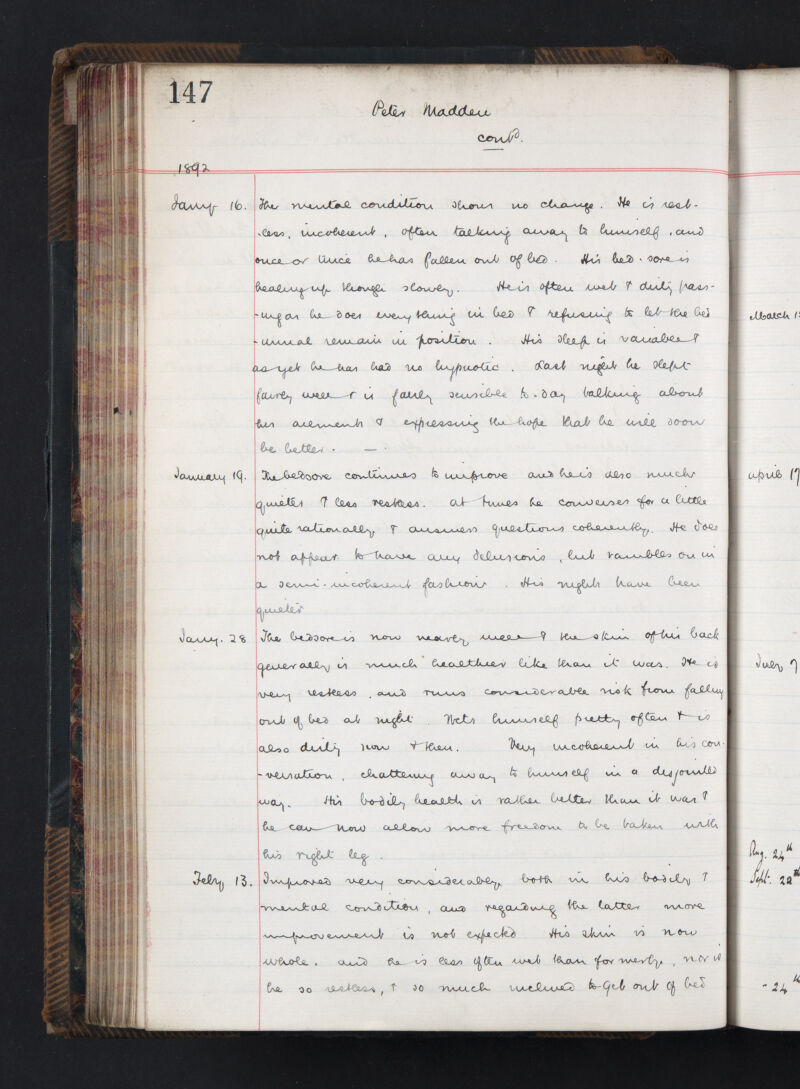 147
Peter Madden
contd.
1892
Jany 16. The mental condition shows no change. He is rest-
-less, incoherent, often talking away to himself, and
once or twice he has fallen out of bed. His bed-sore is
healing up though slowly. He is often wet & dirty, pass-
-ing as he does everything in bed & refusing to let the bed
-urinal remain in position. His sleep is variable &
as yet he has had no hypnotic. Last night he slept
fairly well & is fairly sensible to-day talking about
his ailments & expressing the hope that he will soon
be better. —.
January 19. The bedsore continues to improve and he is also much
quieter & less restless. At times he converses for a little
quite rationally & answers questions coherently. He does
not appear to have any delusions, but rambles on in
a semi-incoherent fashion. His nights have been
quieter
Jany. 28 The bedsore is now nearly well & the skin of his back
generally is much healthier like than it was. He is
very restless, and runs considerable risk from falling
out of bed at night. Wets himself pretty often & is
also dirty now & then. Very incoherent in his con-
-versation, chattering away to himself in a disjointed
way. His bodily health is rather better than it was &
he can now allow more freedom to be taken with
his right leg.
Feby 13. Improved very considerably, both in his bodily &
mental condition, and regarding the latter more
improvement is not expected. His skin is now
whole, and he is less often wet than formerly, nor is
he so restless, & so much inclined to get out of bed
March 1
April 17
July 7
Aug. 24th
Sept. 22th
- 24th